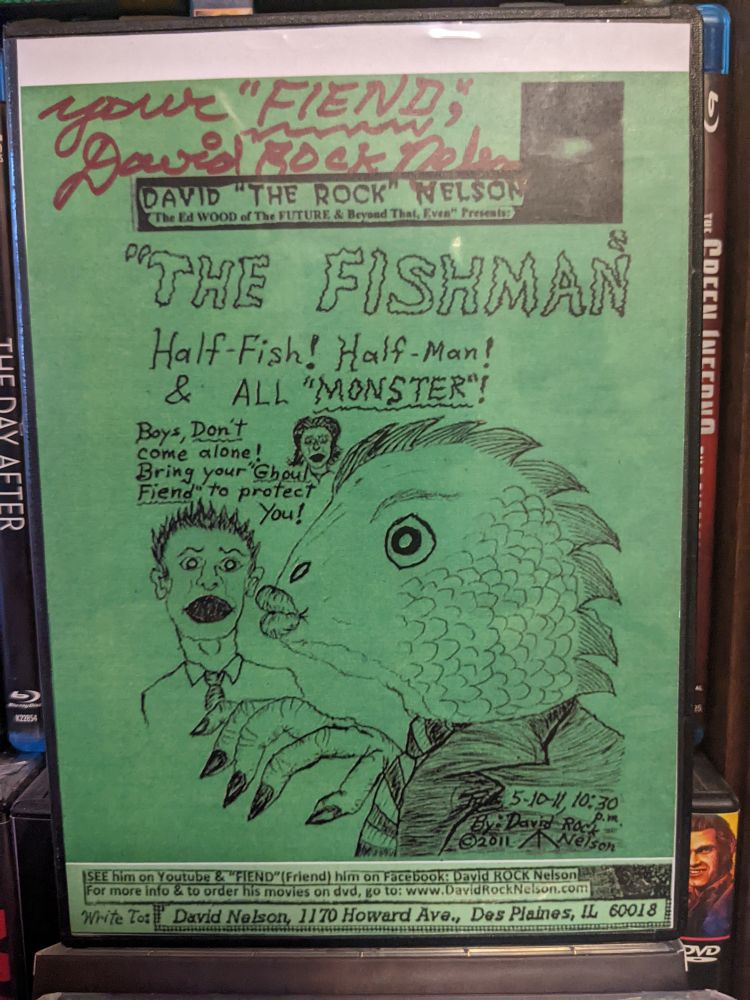 your "FIEND",
David ROCK Nelson
DAVID "THE ROCK" NELSON
"The Ed WOOD of The FUTURE & Beyond That, Even" Presents:
"THE FISHMAN"
Half-Fish! Half-Man!
& ALL "MONSTER"!
Boys, Don't
come alone!
Bring your "Ghoul
Fiend" to protect
You!
5-10-11, 10:30
p.m.
By: David Rock
©2011 Nelson
SEE him on Youtube & "FIEND"(Friend) him on Facebook: David ROCK Nelson
For more info & to order his movies on dvd, go to: www.DavidRockNelson.com
Write To: David Nelson, 1170 Howard Ave., Des Plaines, IL 60018
THE DAY AFTER
Blu-ray Disc
K22854
THE GREEN INFERNO
DVD